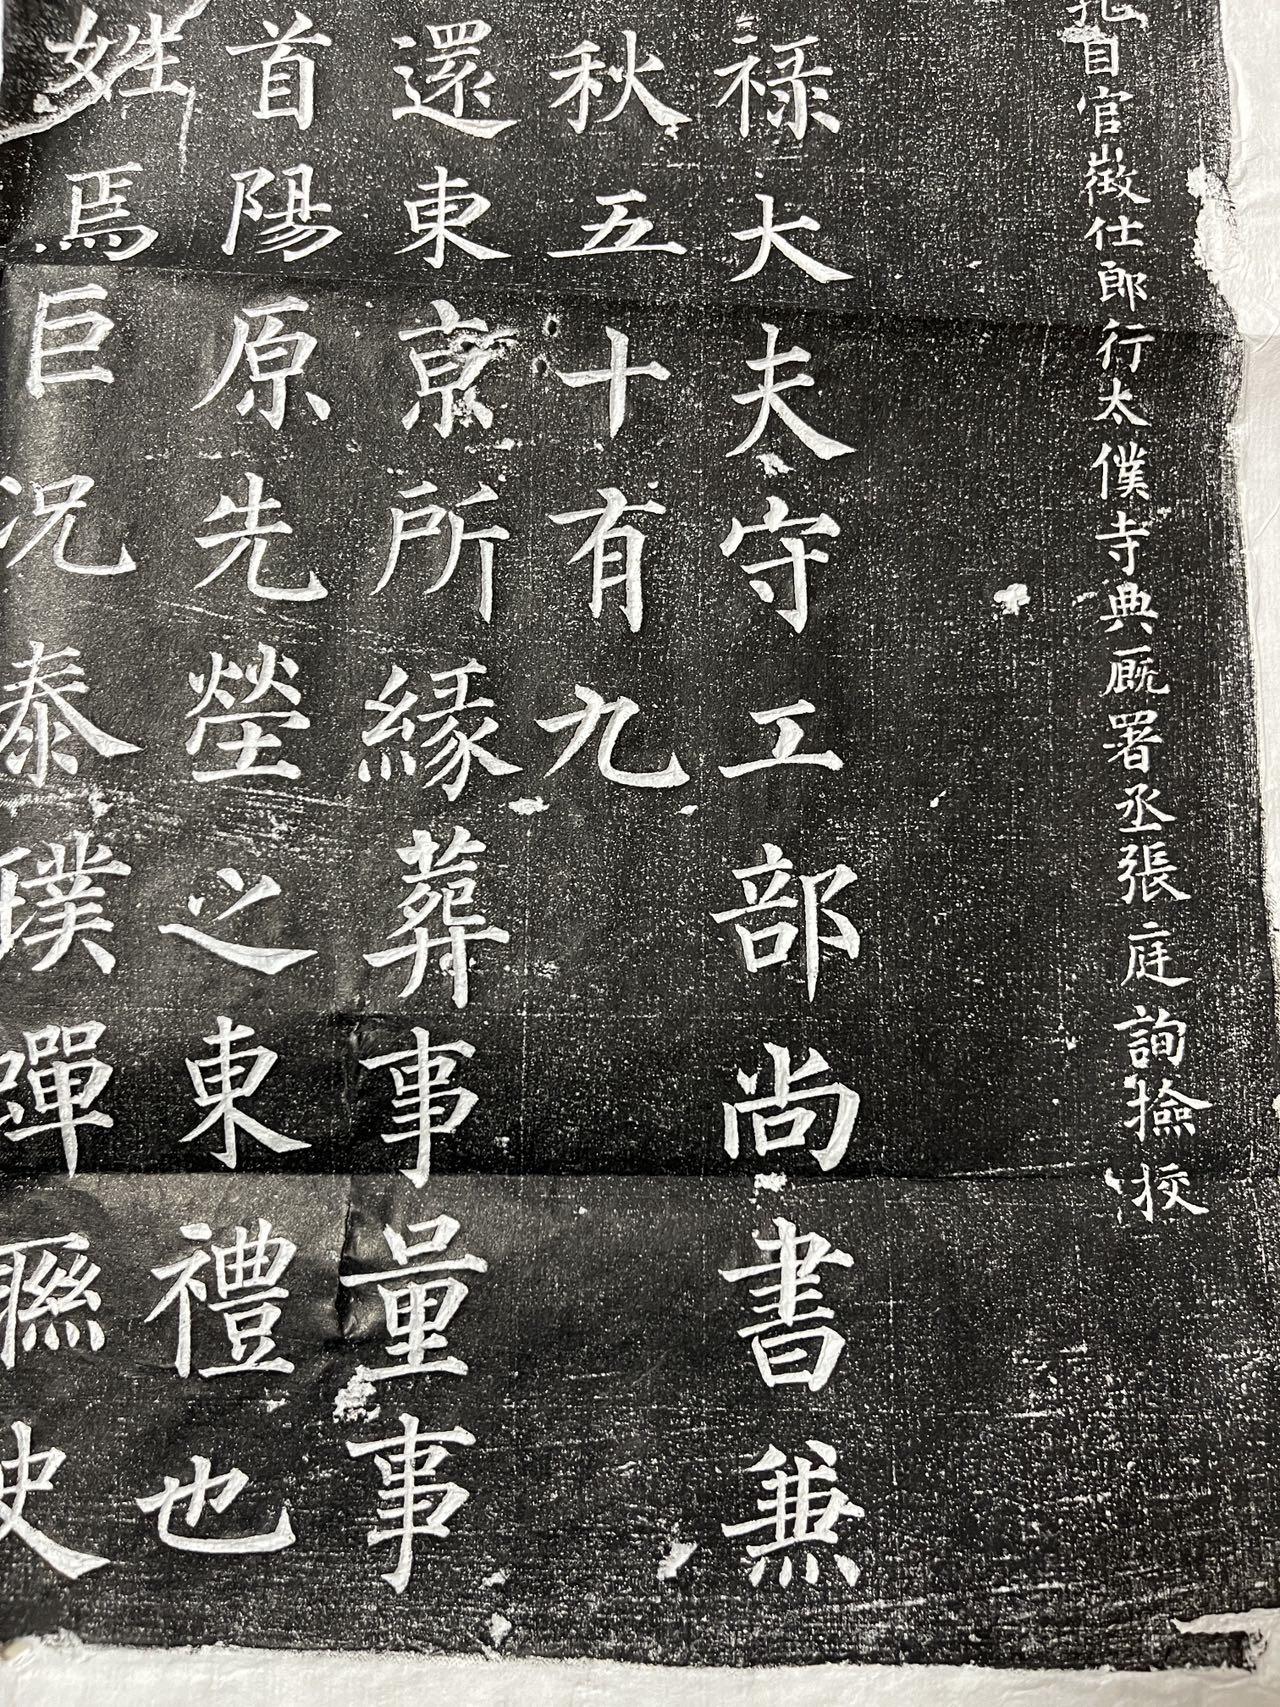 孔目官徵仕郎行太僕寺典廐署丞張庭詢撿挍
禄大夫守工部尚書兼
秋五十有九
還東京所緣葬事量事
首陽原先塋之東禮也
姓焉巨況泰璞蟬聯史